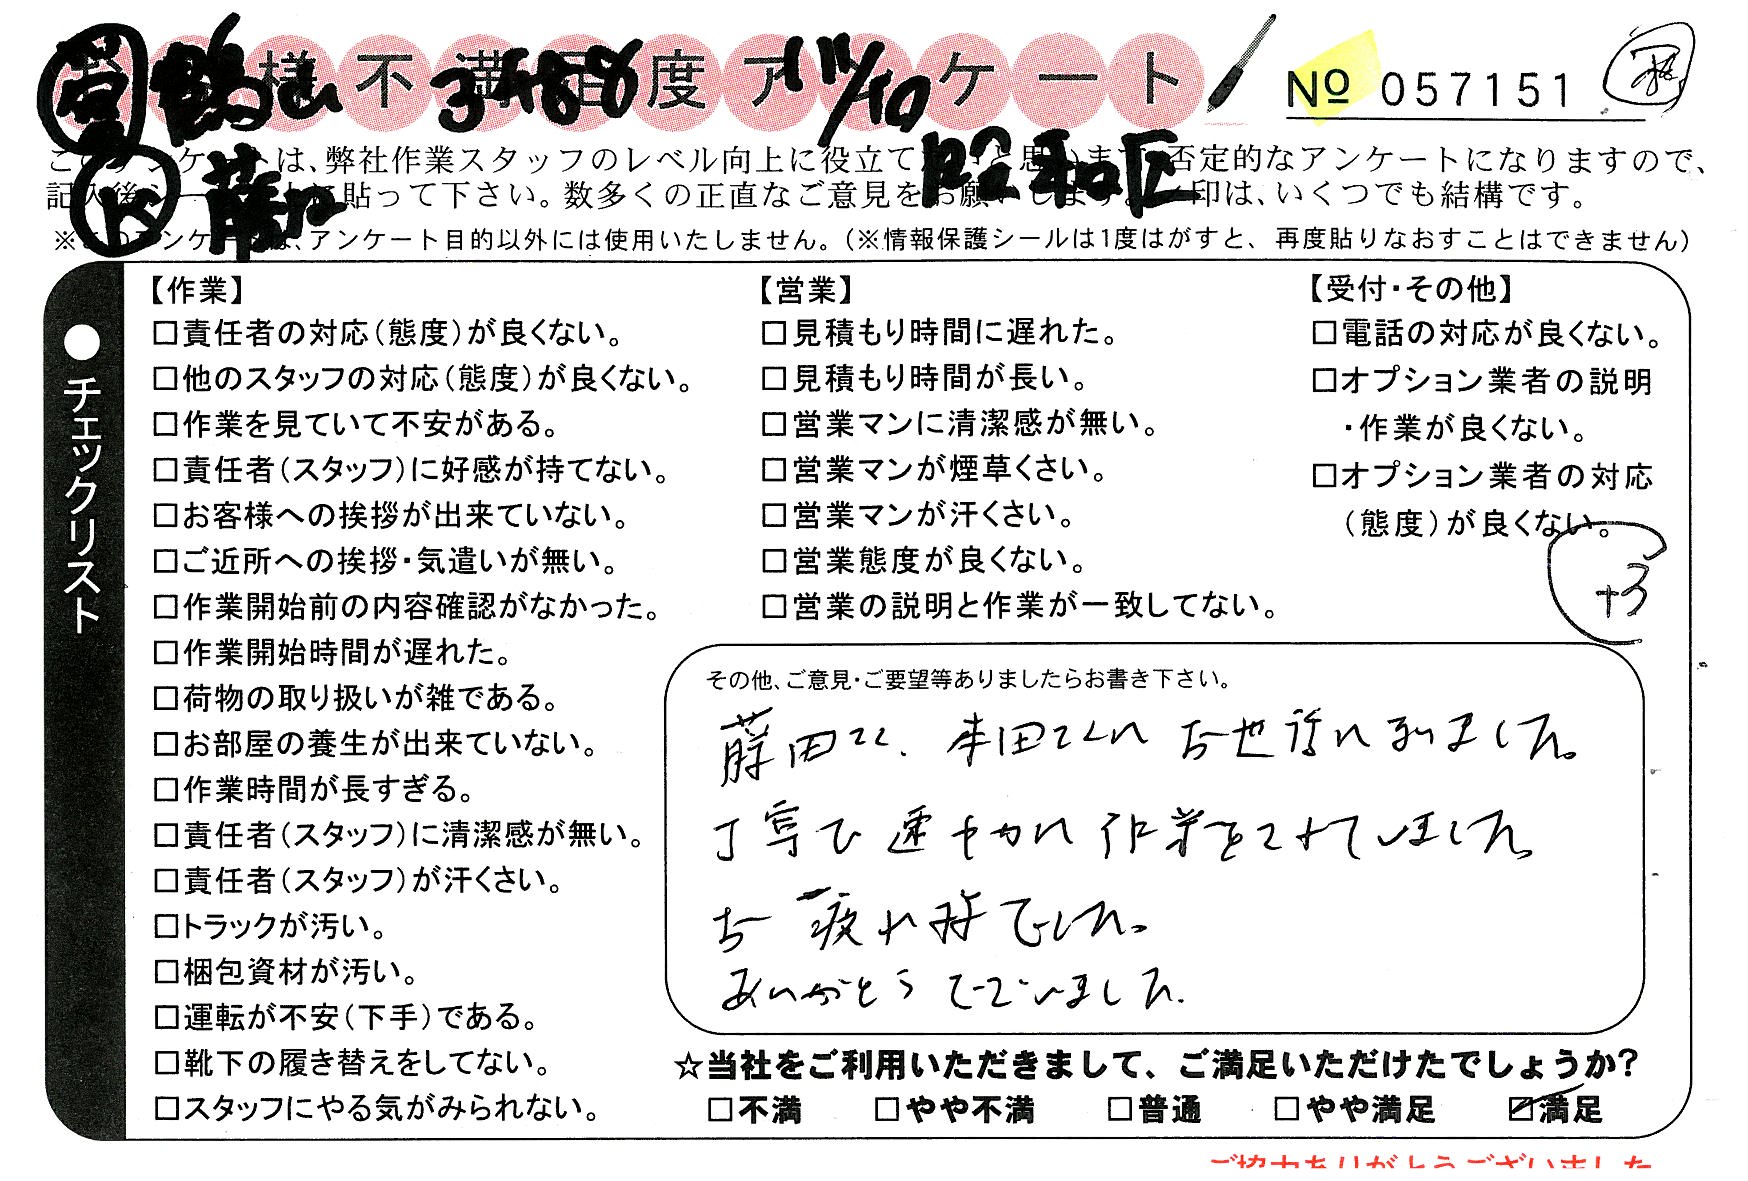 様不満足度アンケート
№ 057151
鶴山 3488 11/10
昭和区
このアンケートは、弊社作業スタッフのレベル向上に役立て
否定的なアンケートになりますので、
貼って下さい。数多くの正直なご意見をお願いします。
印は、いくつでも結構です。
※このアンケートは、アンケート目的以外には使用いたしません。（※情報保護シールは1度はがすと、再度貼りなおすことはできません）
●チェックリスト
【作業】
□責任者の対応（態度）が良くない。
□他のスタッフの対応（態度）が良くない。
□作業を見ていて不安がある。
□責任者（スタッフ）に好感が持てない。
□お客様への挨拶が出来ていない。
□ご近所への挨拶・気遣いが無い。
□作業開始前の内容確認がなかった。
□作業開始時間が遅れた。
□荷物の取り扱いが雑である。
□お部屋の養生が出来ていない。
□作業時間が長すぎる。
□責任者（スタッフ）に清潔感が無い。
□責任者（スタッフ）が汗くさい。
□トラックが汚い。
□梱包資材が汚い。
□運転が不安（下手）である。
□靴下の履き替えをしてない。
□スタッフにやる気がみられない。
【営業】
□見積もり時間に遅れた。
□見積もり時間が長い。
□営業マンに清潔感が無い。
□営業マンが煙草くさい。
□営業マンが汗くさい。
□営業態度が良くない。
□営業の説明と作業が一致してない。
【受付・その他】
□電話の対応が良くない。
□オプション業者の説明
・作業が良くない。
□オプション業者の対応
（態度）が良くない。
+3
その他、ご意見・ご要望等ありましたらお書き下さい。
藤田さん、本田さんに お世話になりました。
丁寧で 速やかに 作業をされていました。
お疲れ様でした。
ありがとうございました。
☆当社をご利用いただきまして、ご満足いただけたでしょうか？
□不満 □やや不満 □普通 □やや満足 ☑満足
ご協力ありがとうございました